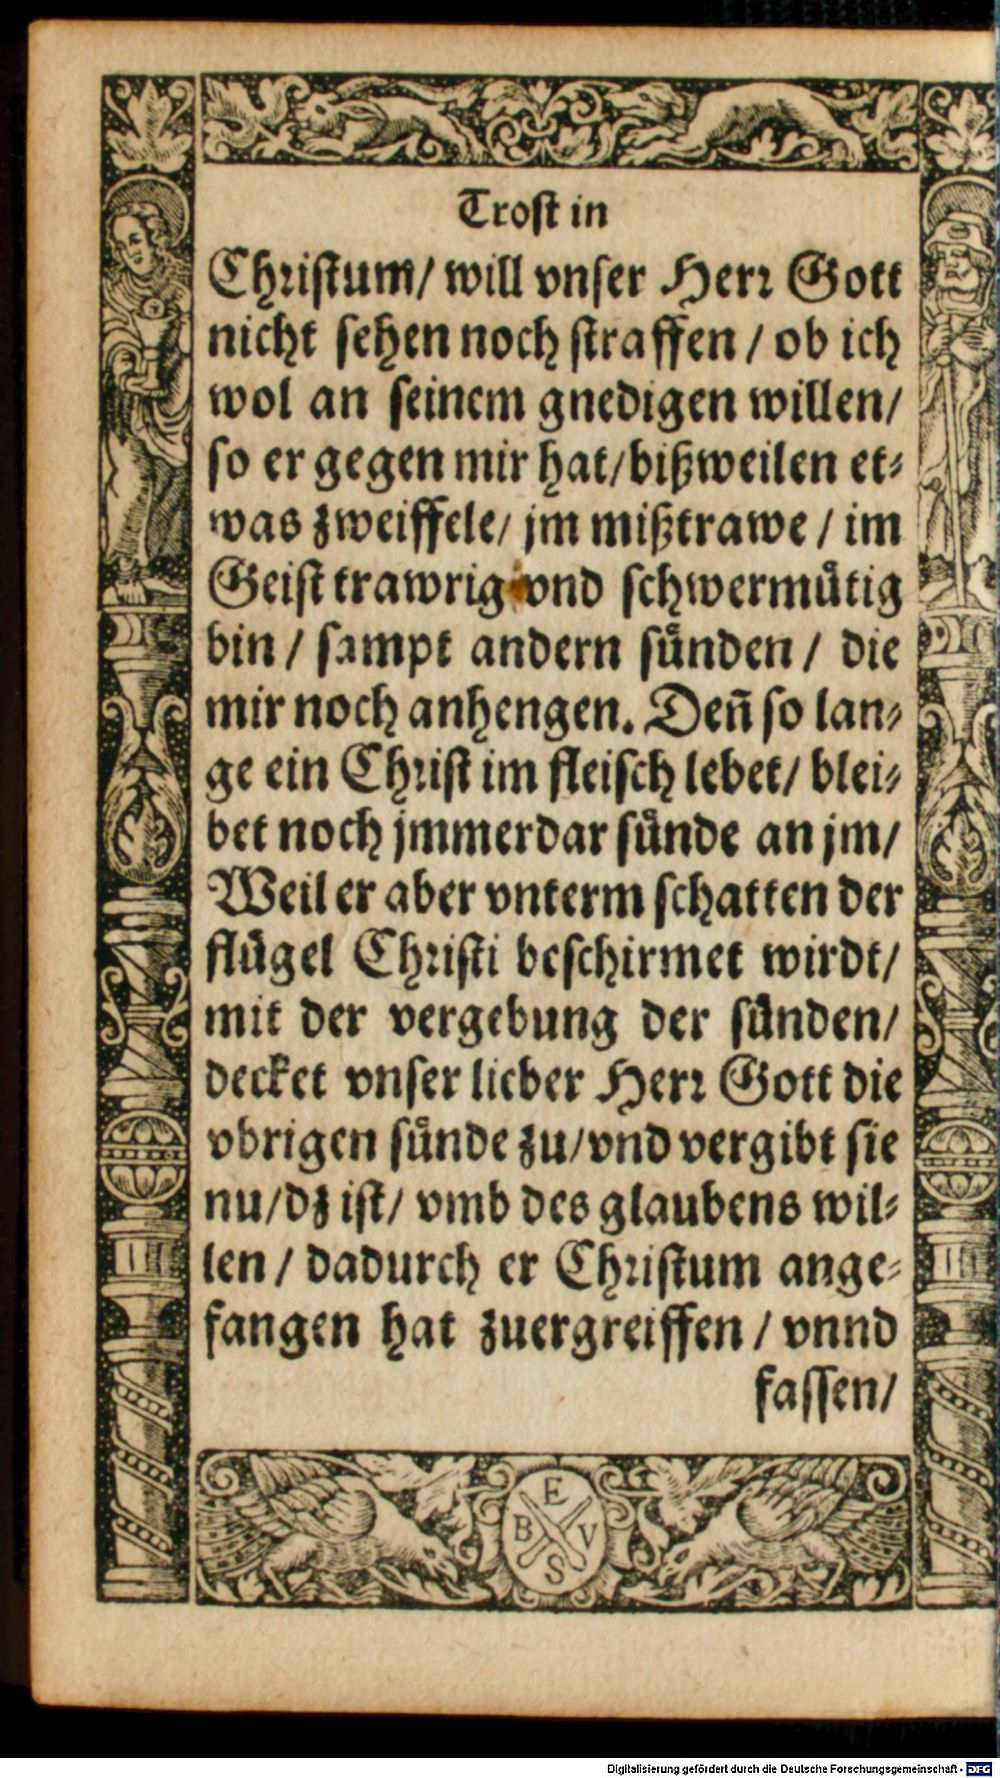 Trost in
Christum/ will vnser Herr Gott
nicht sehen noch straffen / ob ich
wol an seinem gnedigen willen/
so er gegen mir hat/bißweilen et⸗
was zweiffele/ jm mißtrawe / im
Geist trawrig vnd schwermuͤtig
bin / sampt andern suͤnden / die
mir noch anhengen. Deñ so lan⸗
ge ein Christ im fleisch lebet/ blei⸗
bet noch jmmerdar suͤnde an jm/
Weil er aber vnterm schatten der
fluͤgel Christi beschirmet wirdt/
mit der vergebung der suͤnden/
decket vnser lieber Herr Gott die
vbrigen suͤnde zu/vnd vergibt sie
nu/dz ist/ vmb des glaubens wil⸗
len / dadurch er Christum ange⸗
fangen hat zuergreiffen / vnnd
fassen/
E
B V
S
Digitalisierung gefördert durch die Deutsche Forschungsgemeinschaft - DFG